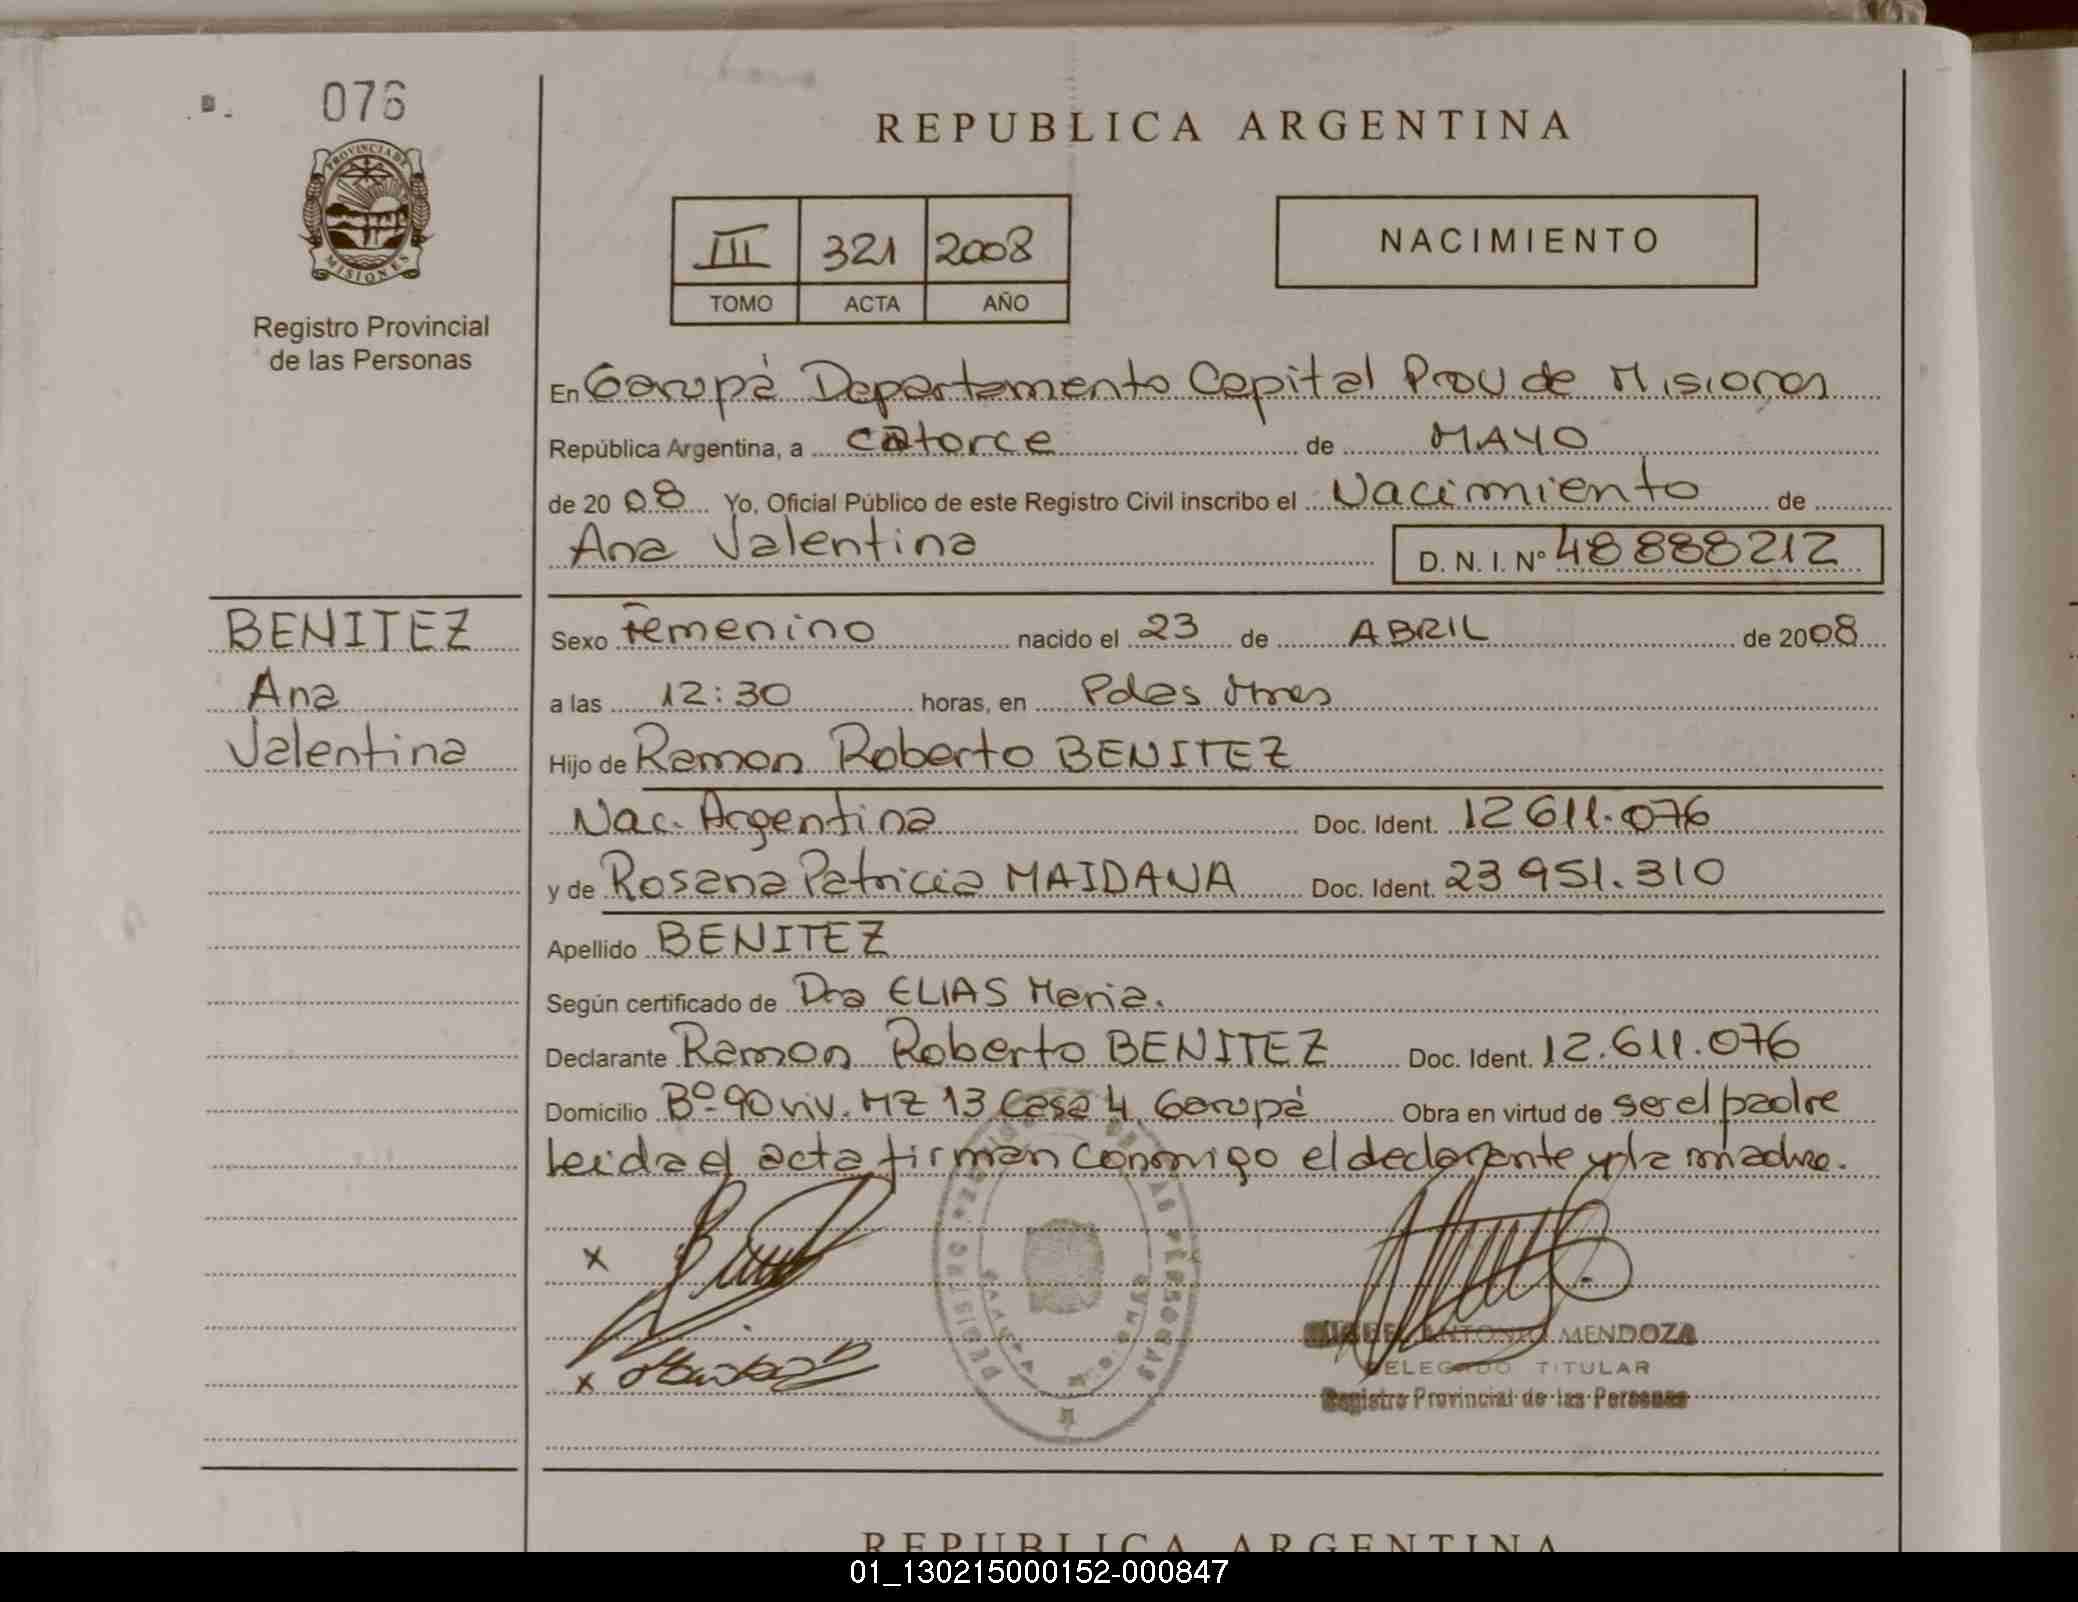 076
PROVINCIA DE
MISIONES
Registro Provincial
de las Personas
BENITEZ
Ana
Valentina
REPUBLICA ARGENTINA
III 321 2008
TOMO ACTA AÑO
NACIMIENTO
En Garupá Departamento Capital Prov de Misiones
República Argentina, a catorce de MAYO
de 2008 Yo, Oficial Público de este Registro Civil inscribo el Nacimiento de
Ana Valentina D. N. I. Nº 48888212
Sexo Femenino nacido el 23 de ABRIL de 2008
a las 12:30 horas, en Pdas Mnes
Hijo de Ramon Roberto BENITEZ
Nac. Argentina Doc. Ident. 12611.076
y de Rosana Patricia MAIDANA Doc. Ident. 23951.310
Apellido BENITEZ
Según certificado de Dra ELIAS Maria.
Declarante Ramon Roberto BENITEZ Doc. Ident. 12.611.076
Domicilio Bº 90 viv. MZ 13 Casa 4 Garupá Obra en virtud de ser el padre
leida el acta firman conmigo el declarante y la madre.
x
x
ANTONIO MENDOZA
DELEGADO TITULAR
Registro Provincial de las Personas
REPUBLICA ARGENTINA
01_130215000152-000847